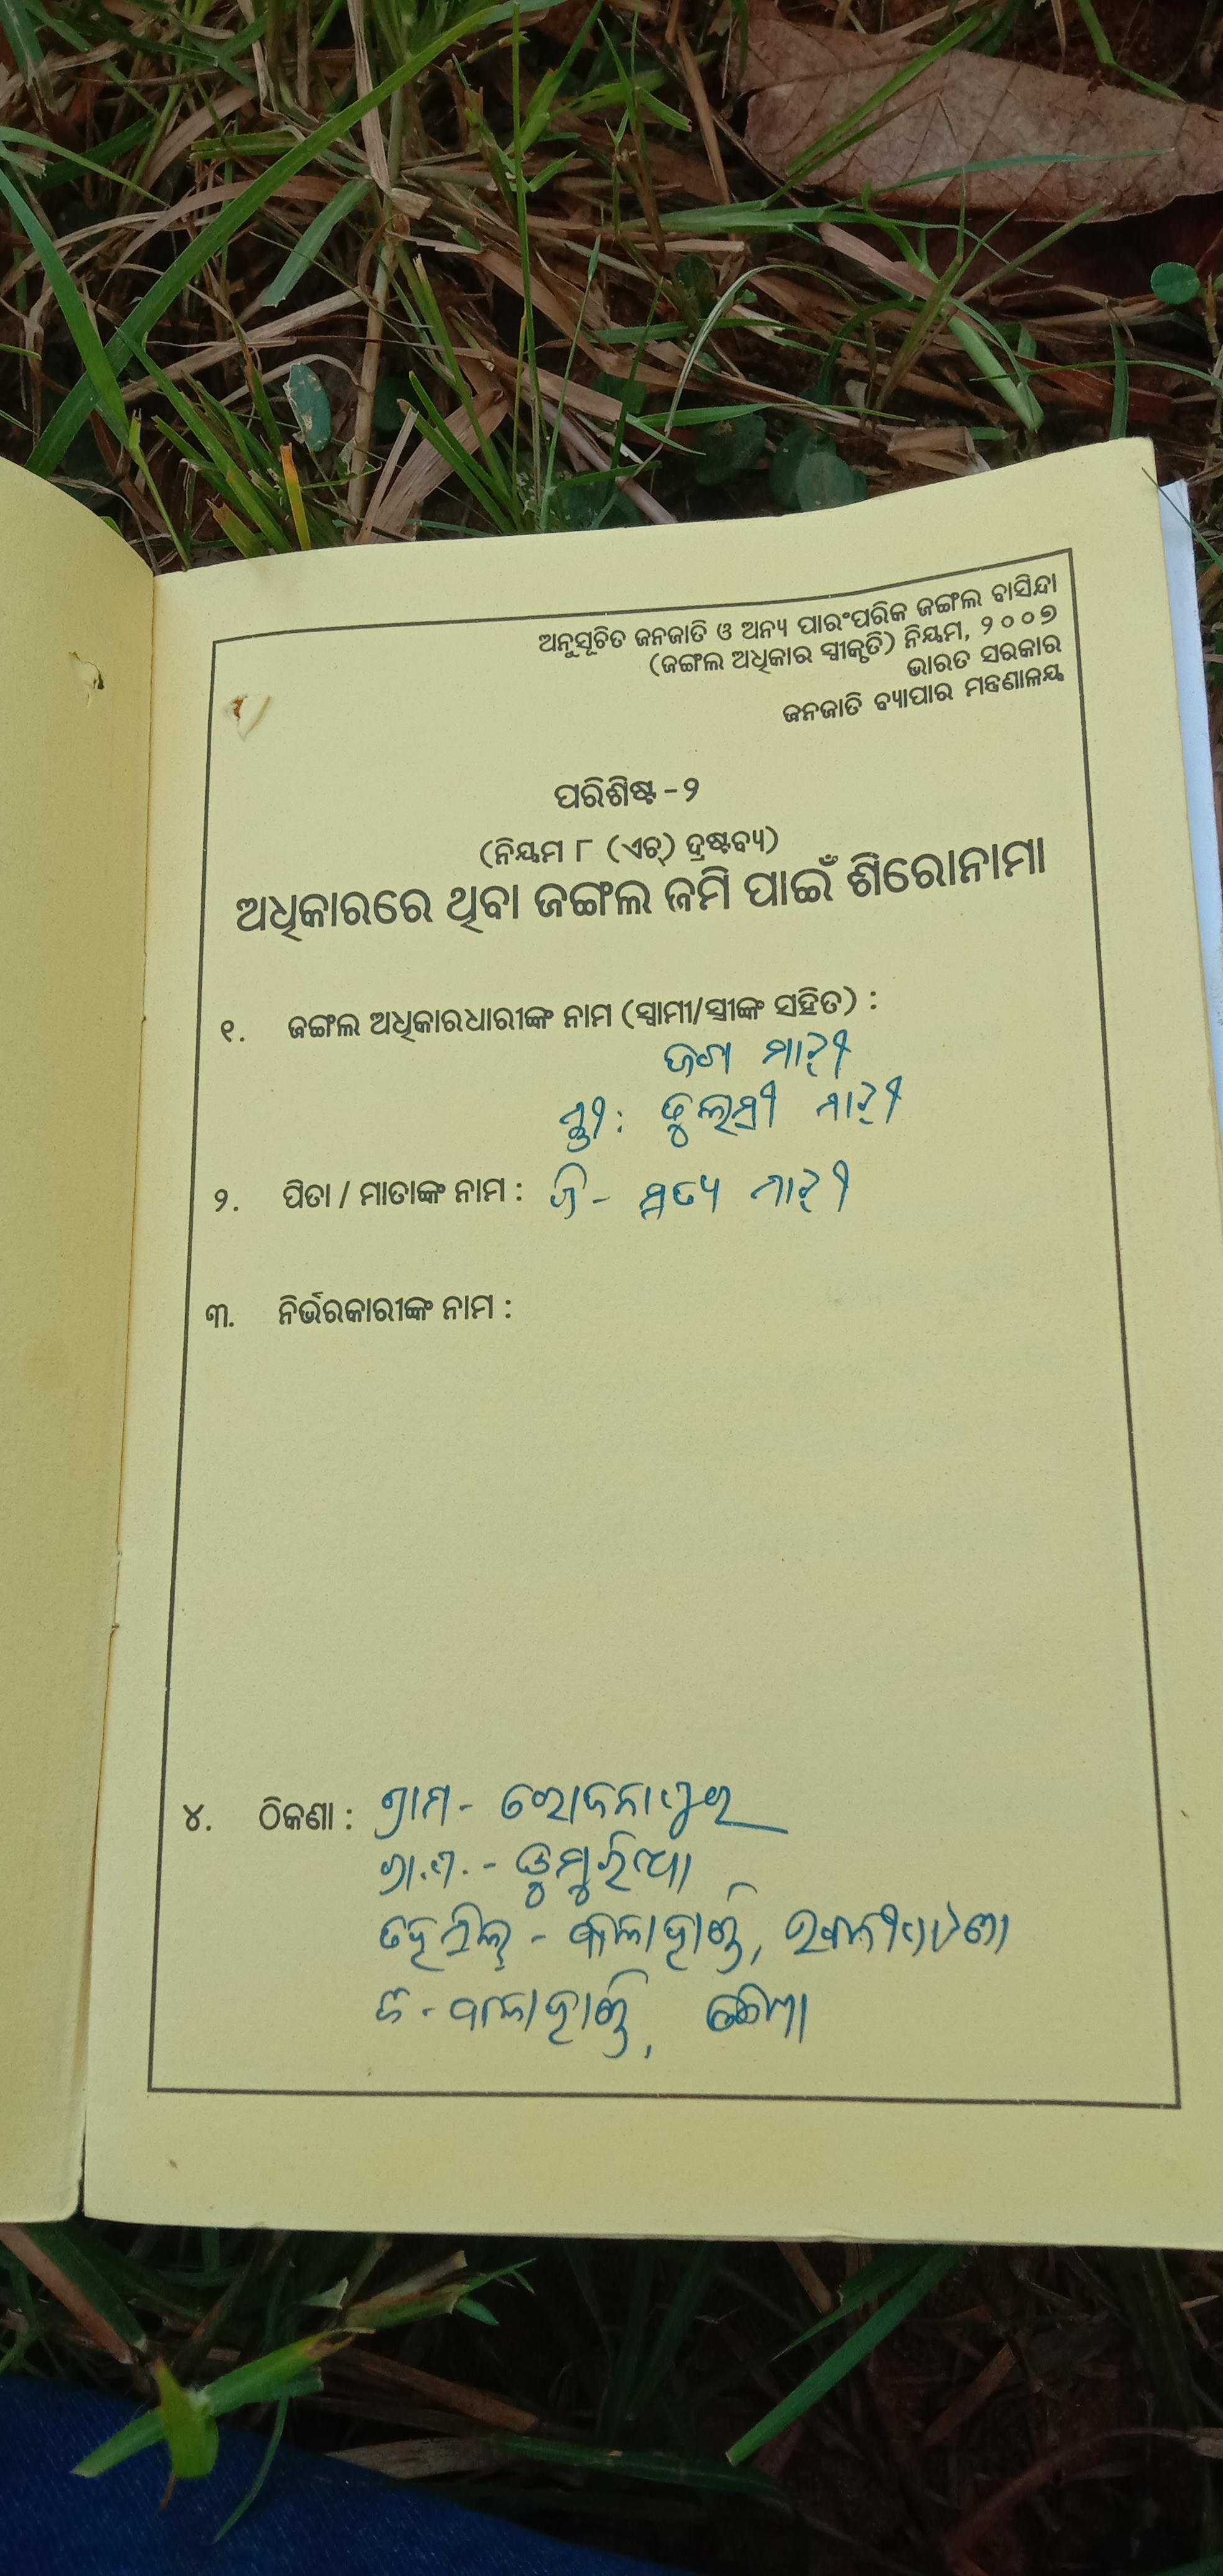 ଅନୁସୂଚିତ ଜନଜାତି ଓ ଅନ୍ୟ ପାରଂପରିକ ଜଙ୍ଗଲ ବାସିନ୍ଦା
(ଜଙ୍ଗଲ ଅଧିକାର ସ୍ୱୀକୃତି) ନିୟମ, ୨୦୦୭
ଭାରତ ସରକାର
ଜନଜାତି ବ୍ୟାପାର ମନ୍ତ୍ରଣାଳୟ
ପରିଶିଷ୍ଟ -୨
(ନିୟମ ୮ (ଏଚ୍) ଦ୍ରଷ୍ଟବ୍ୟ)
ଅଧିକାରରେ ଥିବା ଜଙ୍ଗଲ ଜମି ପାଇଁ ଶିରୋନାମା
୧. ଜଙ୍ଗଲ ଅଧିକାରଧାରୀଙ୍କ ନାମ (ସ୍ୱାମୀ/ସ୍ତ୍ରୀଙ୍କ ସହିତ) :
ମାଝୀ
ସ୍ତ୍ରୀ : ମାଝୀ
୨. ପିତା / ମାତାଙ୍କ ନାମ : ମାଝୀ
୩. ନିର୍ଭରକାରୀଙ୍କ ନାମ :
୪. ଠିକଣା : ଗ୍ରାମ -
ଗ୍ରା.ପ. - ଡୁମୁରିଆ
ତହସିଲ୍ - କଳାହାଣ୍ଡି,
ଜି - କଳାହାଣ୍ଡି,